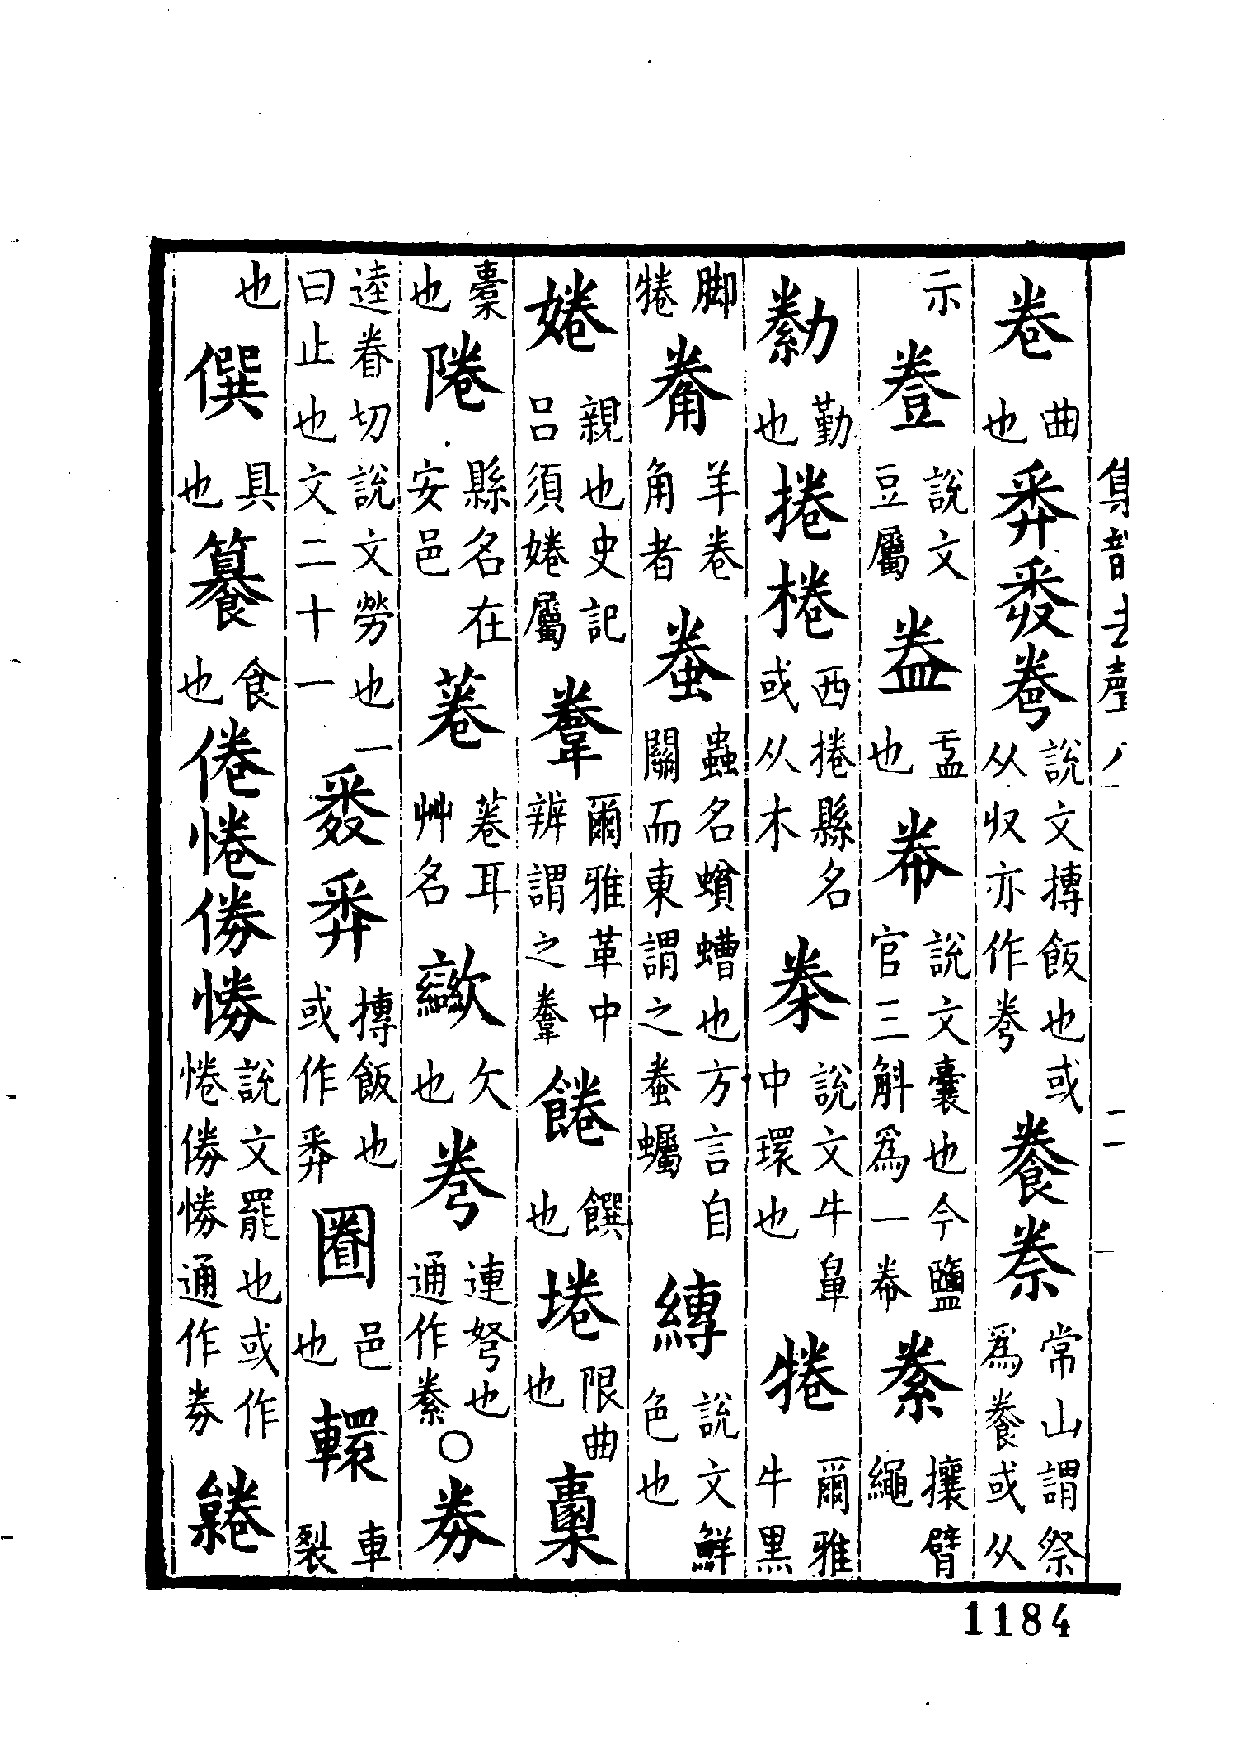 集韻去聲八
二
卷曲也𢍏𢍕弮說文摶飯也或从収亦作弮餋祭常山謂祭爲餋或从
示䅚說文豆屬㿻盂也帣說文囊也今鹽官三斛爲一帣絭攘臂繩
勌勤也捲棬西捲縣名或从木桊說文牛鼻中環也犈爾雅牛黑
脚犈觠羊卷角者蜷蟲名蠀螬也方言自關而東謂之蜷蠾縳說文鮮色也
婘親也史記呂須婘屬韏爾雅革中辨謂之韏餋饌也埢限曲也櫜
櫜也陯縣名在安邑菤菤耳艸名欠也弮連弩也通作絭○券
逵眷切說文勞也一曰止也文二十一𢍕𢍏摶飯也或作𢍏圈邑也轘車裂
也僎具也籑食也倦惓劵說文罷也或作惓通作券
1184